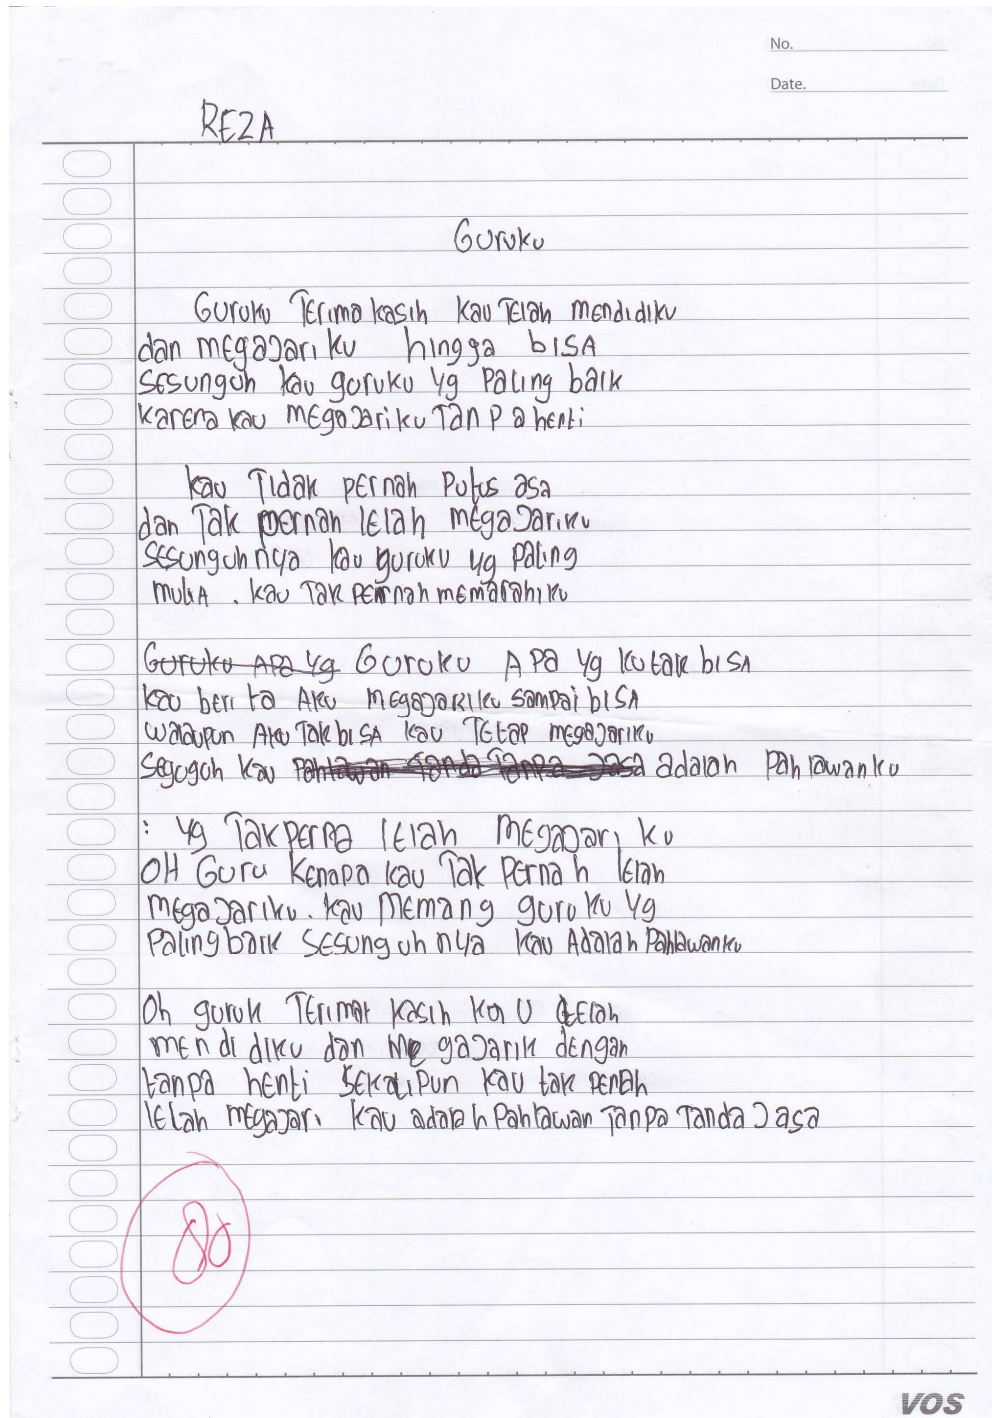 No.
Date.
REZA
Guruku
Guruku Terima kasih kau Telah mendidiku
dan megajariku hingga bisa
sesunguh kau guruku yg paling baik
karena kau megajariku Tanpa henti
kau Tidak pernah putus asa
dan Tak pernah lelah megajariku
sesunguhnya kau guruku yg paling
mulia. kau Tak pernah memarahiku
Guruku Apa yg Guruku Apa yg kutak bisa
kau beri ta Aku megajariku sampai bisa
walaupun Aku Tak bisa kau Tetap megajariku
segoguh kau Pahlawan Tanda Tanpa Jasa adalah Pahlawanku
: yg Tak perna lelah megajariku
OH Guru kenapa kau Tak pernah lelah
megajariku. kau memang guruku yg
Paling baik sesunguhnya kau Adalah Pahlawanku
Oh guruk Terimak kasih kau telah
mendidiku dan megajarik dengan
tanpa henti sekalipun kau tak penah
lelah megajari kau adalah Pahlawan Tanpa Tanda Jasa
80
VOS